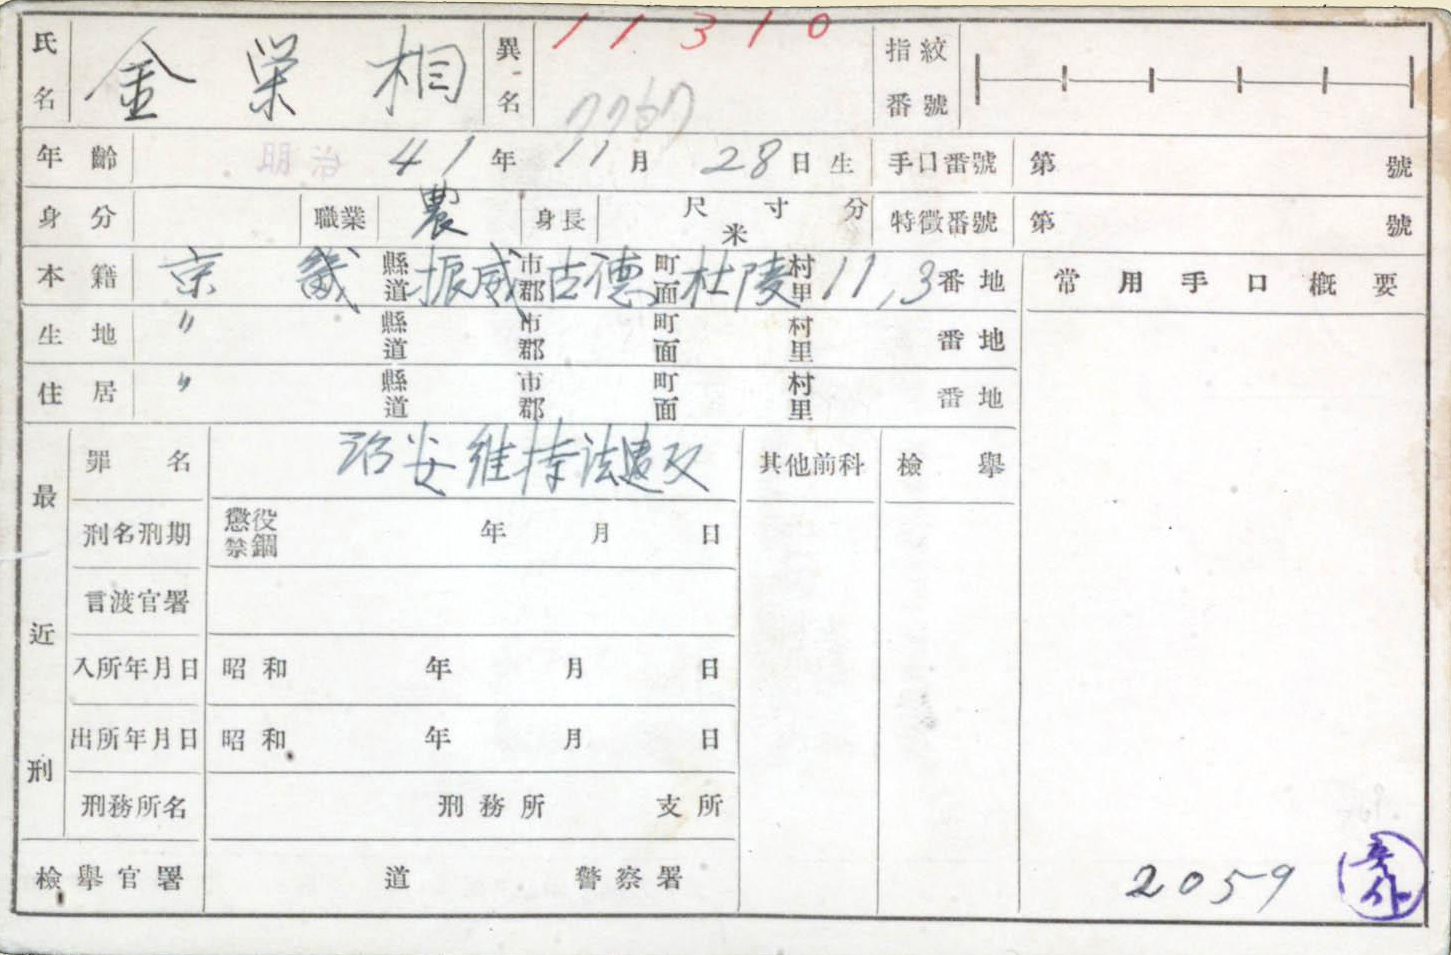 11310
氏名 金栄相 異名 指紋番號
7767
年齡 41年11月28日生 手口番號 第 號
身分 職業 農 身長 尺寸分 米 特徵番號 第 號
本籍 京畿 縣道 振威 市郡 古德 町面 杜陵 村里 11,3 番地 常用手口概要
生地 〃 縣道 市郡 町面 村里 番地
住居 〃 縣道 市郡 町面 村里 番地
最近刑 罪名 治安維持法違反 其他前科 檢擧
刑名刑期 懲役 禁錮 年月日
言渡官署
入所年月日 昭和 年月日
出所年月日 昭和 年月日
刑務所名 刑務所 支所
檢擧官署 道 警察署
2059